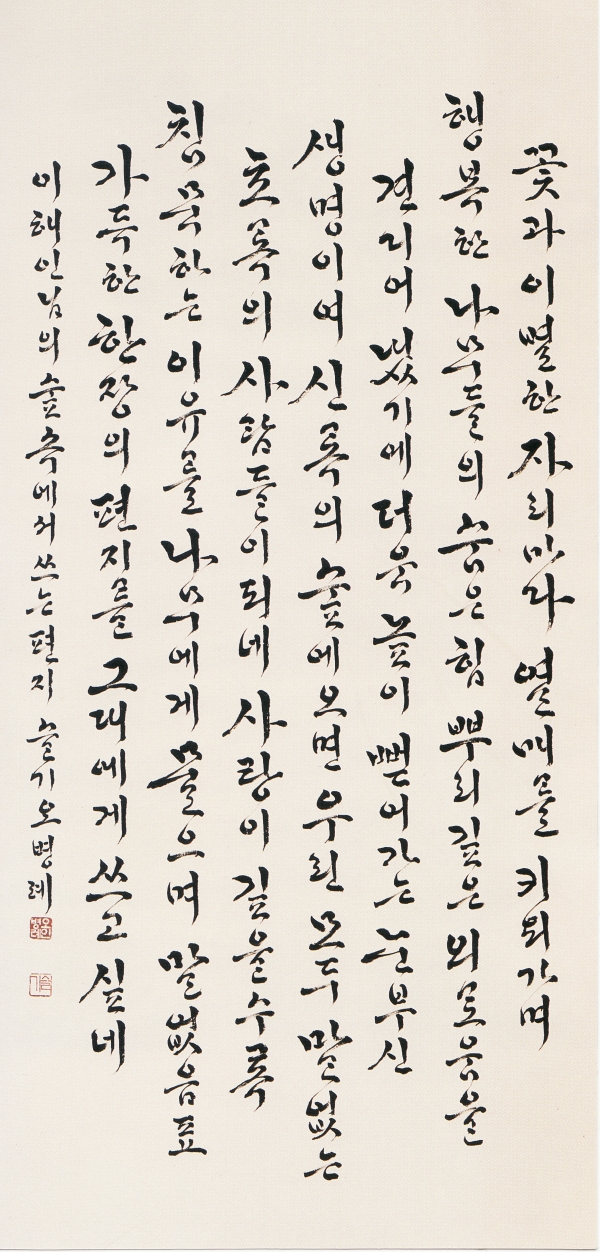 꽃과 이별한 자리마다 열매를 키워가며
행복한 나무들의 숨은 힘 뿌리깊은 외로움을
견디어 냈기에 더욱 높이 뻗어가는 눈부신
생명이여 신록의 숲에 오면 우린 모두 말없는
초록의 사람들이 되네 사랑이 깊을수록
침묵하는 이유를 나무에게 물으며 말없음표
가득한 한장의 편지를 그대에게 쓰고 싶네
이해인님의 숲속에서 쓰는 편지 슬기 오병례